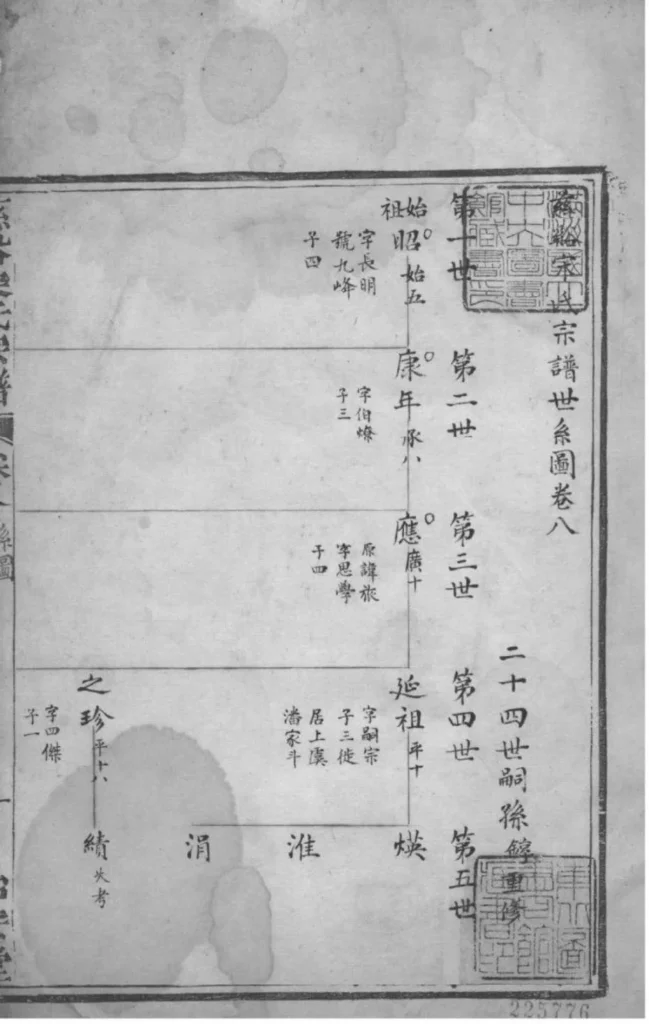 宗譜世系圖卷八
二十四世嗣孫
重修
第一世
始祖
昭 始五
字長明
號九峰
子四
第二世
康年 承八
字伯燎
子三
第三世
應 廣十
原諱旅
字思學
子四
第四世
延祖 平十
字嗣宗
子三徙
居上虞
潘家斗
之珍 平十八
字四傑
子一
第五世
煐
淮
涓
績 失考
225776